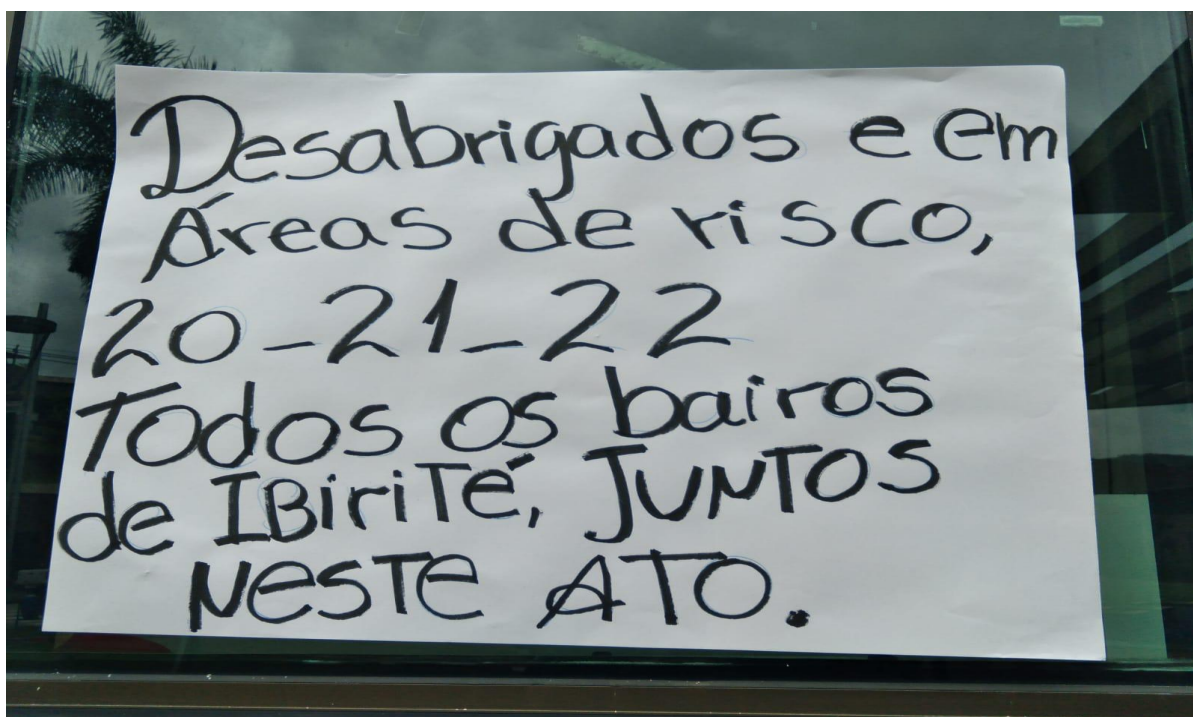 Desabrigados e em
Áreas de risco,
20_21_22
Todos os bairos
de IBiriTé, JUNTOS
NesTe ATO.